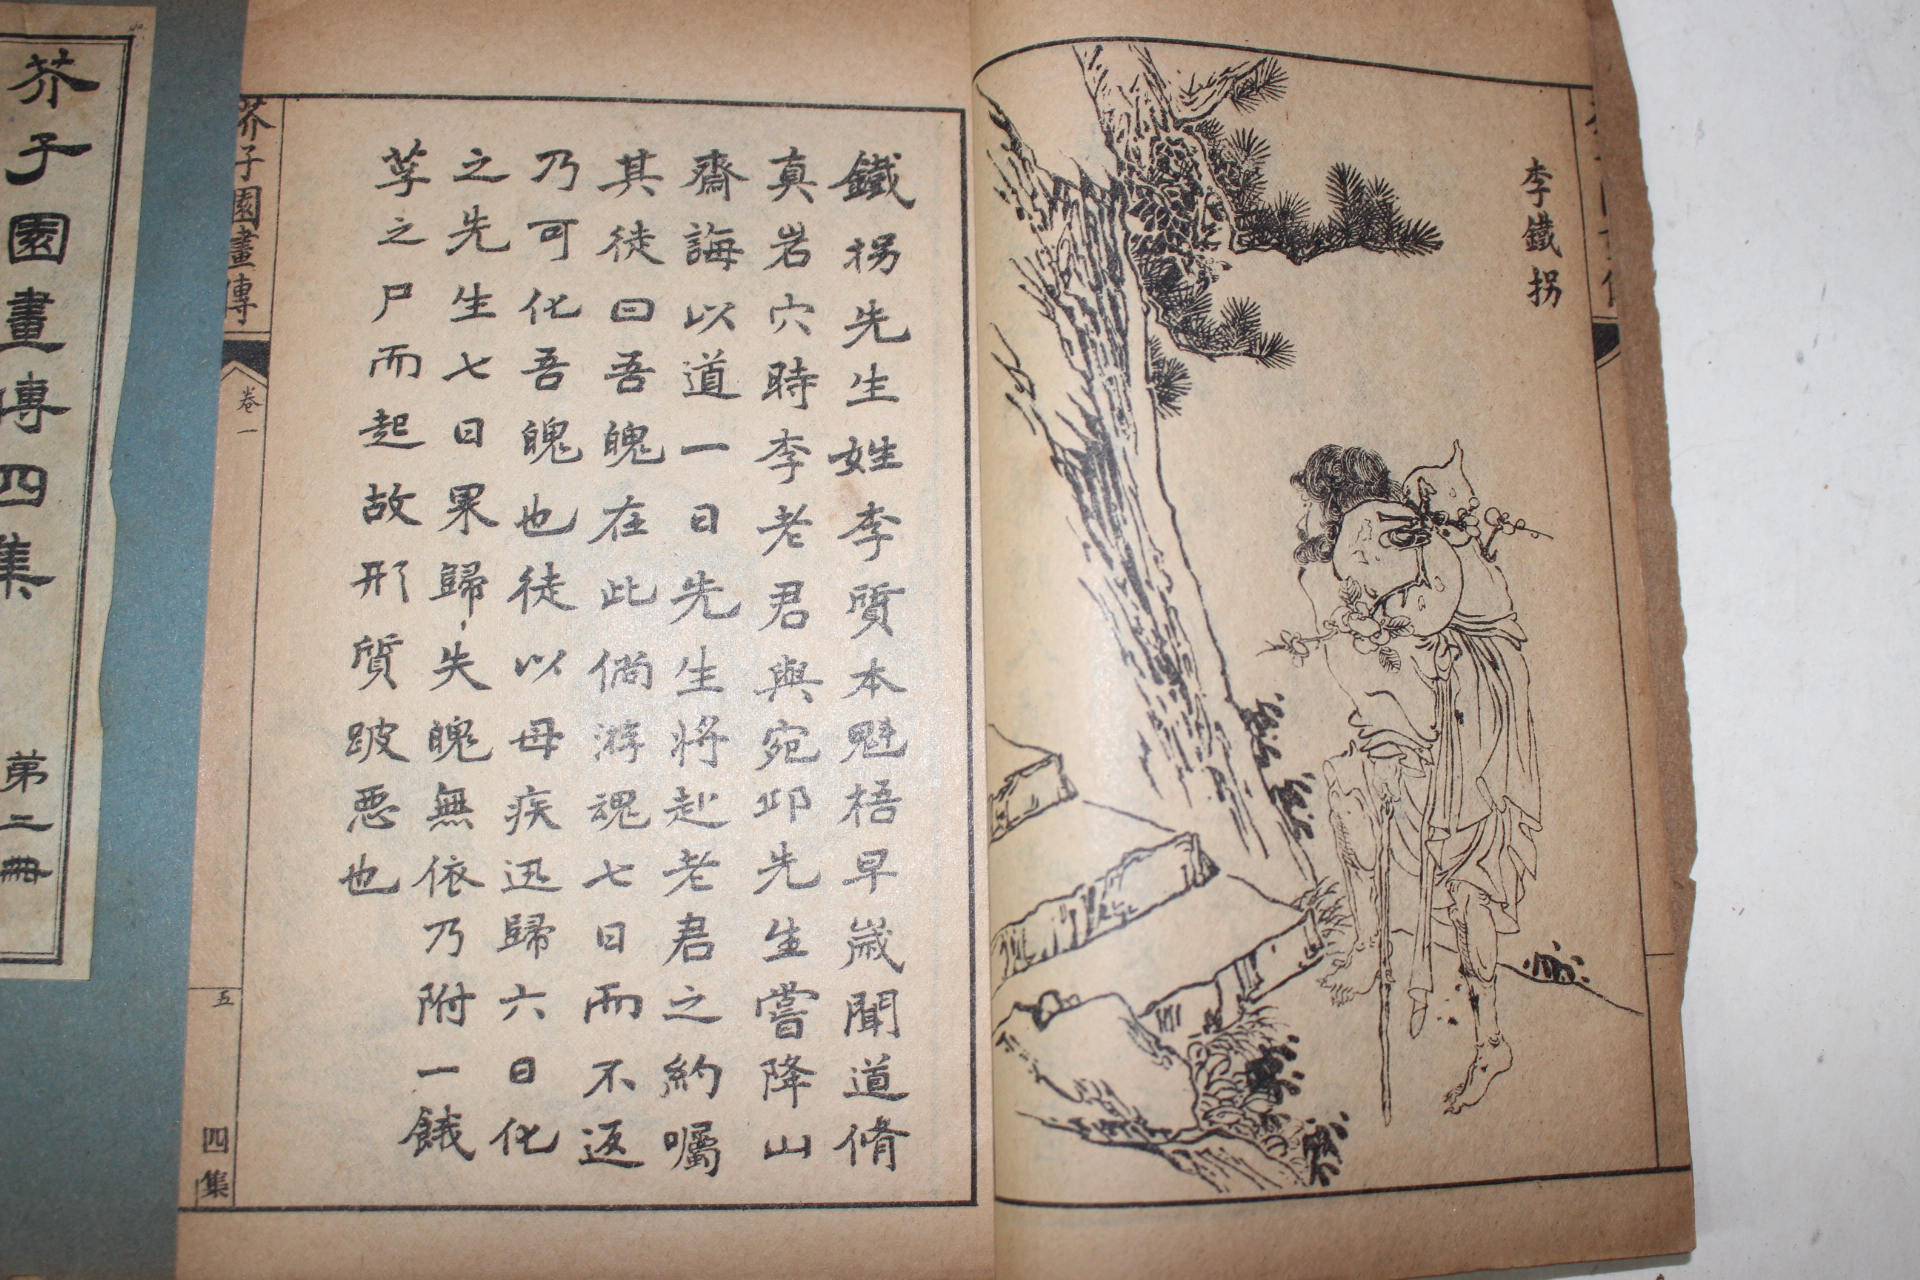 李鐵拐
鐵拐先生姓李質本魁梧早歲聞道脩
真岩穴時李老君與宛邱先生嘗降山
齋誨以道一日先生將赴老君之約囑
其徒曰吾魄在此倘游魂七日而不返
乃可化吾魄也徒以母疾迅歸六日化
之先生七日果歸失魄無依乃附一餓
莩之尸而起故形質跛惡也
芥子園畫傳
卷一
五
四集
芥子園畫傳四集
第二冊